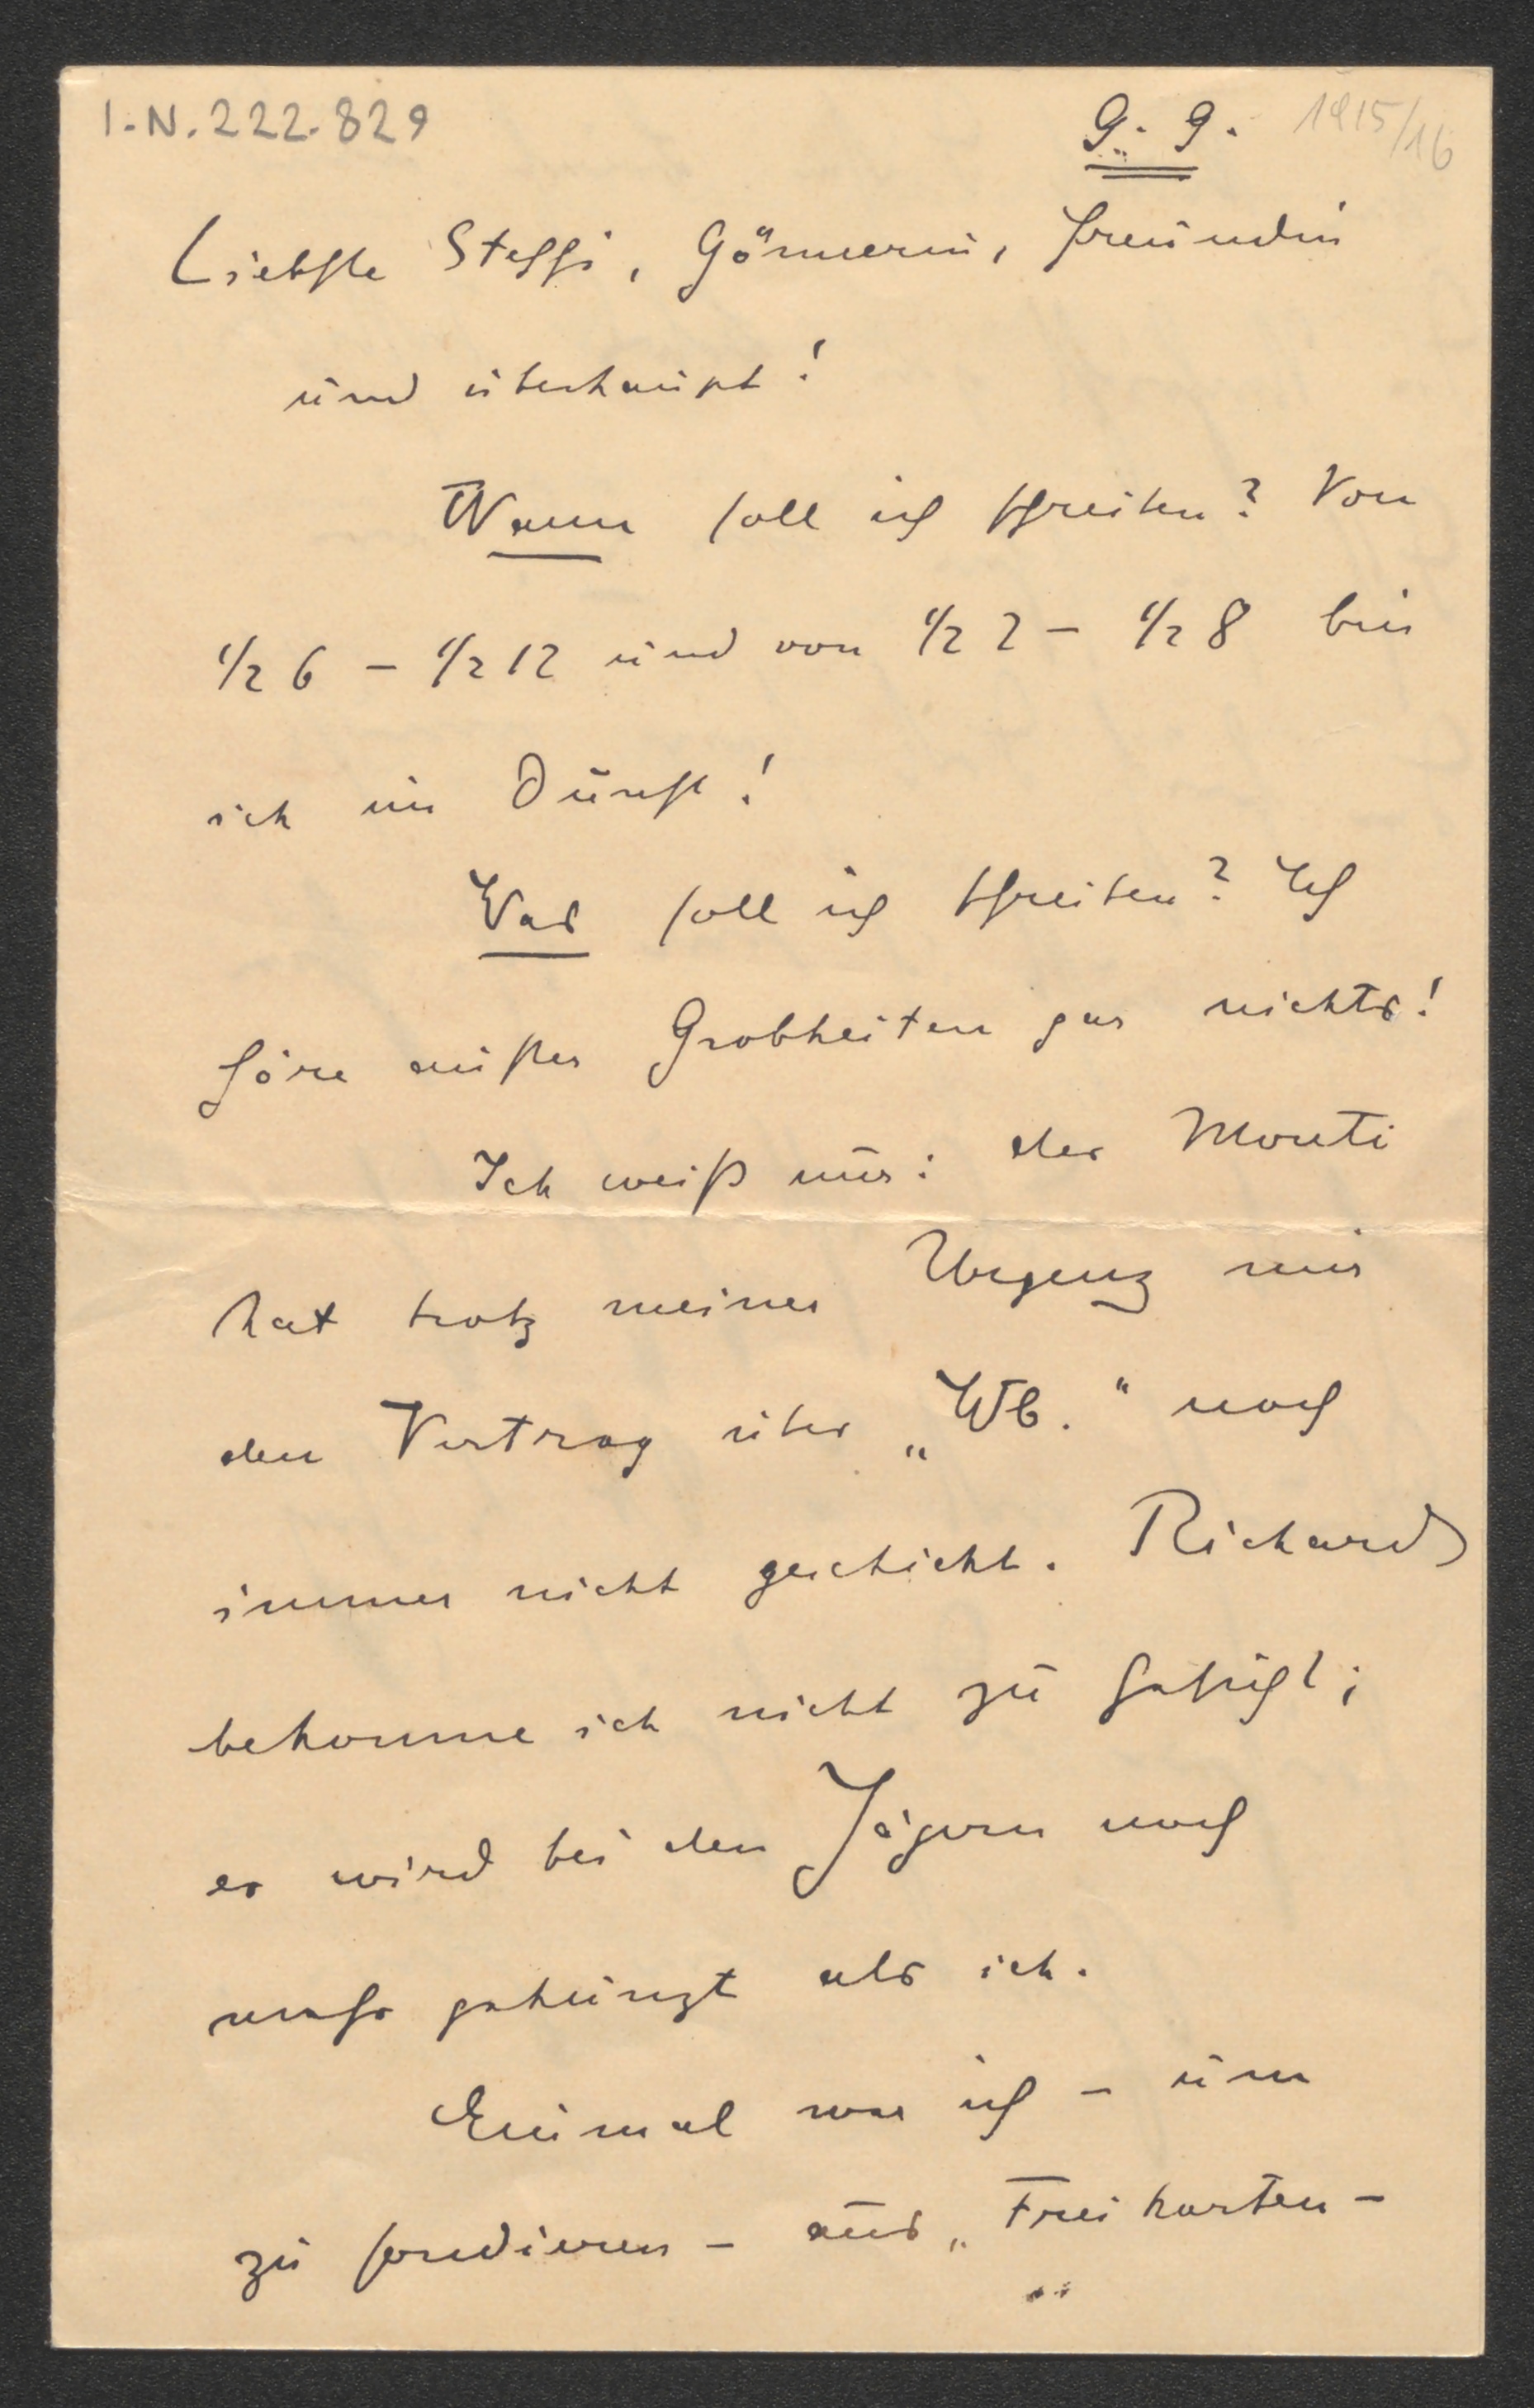 I.N. 222.829
9. 9. 1915/16
Liebste Steffi, Gönnerin, Freundin
und überhaupt!
Wann soll ich schreiben? Von
1/2 6 – 1/2 12 und von 1/2 2 – 1/2 8 bin
ich im Dunst!
Was soll ich schreiben? Ich
höre außer Grobheiten gar nichts!
Ich weiß nur: der Monti
hat trotz meiner Urgenz mir
den Vertrag über „Wb.“ noch
immer nicht geschickt. Richard
bekomme ich nicht zu Gesicht;
er wird bei den Jägern noch
mehr gehunzt als ich.
Einmal war ich – um
zu sondieren – aus „Freikarten-